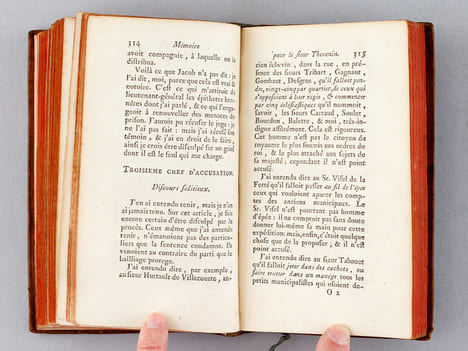 314 Mémoire
avoit compagnie, à laquelle on le
distribua.
Voilà ce que Jacob n'a pas dit : je
l'ai dit, moi, parce que cela est vrai &
notoire. C'est ce qui m'attiroit du
lieutenant-général les épithetes humi-
néees dont j'ai parlé, & ce qui l'enga-
geoit à renouveller des menaces de
prison. J'aurois pu récuser le juge : je
ne l'ai pas fait ; mais j'ai récusé son
témoin, & j'ai eu droit de le faire,
ainsi je crois être disculpé sur un grief
dont il est le seul qui me charge.
TROISIEME CHEF D'ACCUSATION.
Discours séditieux.
J'en ai entendu tenir, mais je n'en
ai jamais tenu. Sur cet article, je suis
encore certain d'être disculpé par le
procès. Ceux même que j'ai entendu
tenir, n'émanoient pas des particu-
liers que la sentence condamne. Ils
venoient au contraire du parti que le
bailliage protege.
J'ai entendu dire, par exemple,
au sieur Hurtault de Villecourte, an-
pour le sieur Thevenin. 315
cien échevin, dans la rue, en pré-
sence des sieurs Tribart, Gagnaut,
Gombaut, Desgros, qu'il falloit pen-
dre, vingt-cinq par quartier, de ceux qui
s'opposoient à leur regie, & commencer
par cinq éclésiastiques qu'il nommoit,
savoir, les sieurs Carraud, Soulet,
Bourdon, Balette, & moi, très-in-
digne assurément. Cela est rigoureux.
Cet homme n'est pas le citoyen du
royaume le plus soumis aux ordres du
roi, & le plus attaché aux sujets de
sa majesté, cependant il n'est point
accusé.
J'ai entendu dire au Sr. Visel de la
Ferté qu'il falloit passer au fil de l'épée
ceux qui vouloient apurer les comp-
tes des anciens municipaux. Le
Sr. Visel n'est pourtant pas homme
d'épée : il ne comptoit pas sans doute
donner lui-même sa main pour cette
expédition : mais, enfin, c'étoit quelque
chose que de la proposer, & il n'est
point accusé.
J'ai entendu dire au sieur Tabouet
qu'il falloit jeter dans des cachots, ou
faire trotter dans un manége tous les
petits municipalistes qui osoient de-
O 2